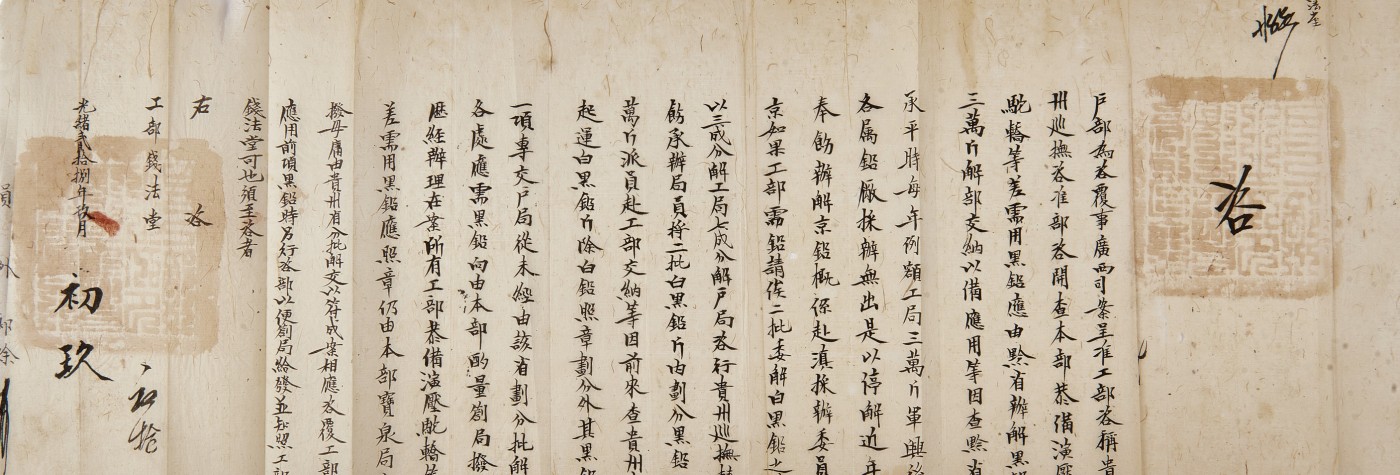 法堂
咨
戶部為咨覆事廣西司案呈准工部咨稱貴
州巡撫咨准部咨開查本部恭備演壓
駝轎等差需用黑鉛應由黔省辦解黑
三萬斤解部交納以備應用等因查黔省
承平時每年例額工局三萬斤軍興
各属鉛廠採辦無出是以停解近年
奉飭辦解京鉛概係赴滇採辦委員
京如果工部需鉛請俟二批委解白黑鉛
以三成分解工局七成分解戶局咨行貴州巡撫
飭承辦局員将二批白黑鉛斤内劃分黑鉛
萬斤派員赴工部交納等因前來查貴州
起運白黑鉛斤除白鉛照章劃分外其黑鉛
一項專交戶局從未經由該省劃分批解
各處應需黑鉛向由本部酌量劄局撥
歷經辦理在案所有工部恭備演壓駝轎
差需用黑鉛應照章仍由本部寶泉局
撥毋庸由貴州省分批解交以符成案相應咨覆工部
應用前項黑鉛時另行咨部以便劄局給發並知照工部
錢法堂可也須至咨者
右咨
工部錢法堂
光緒貳拾捌年玖月
初玖
員外郎徐